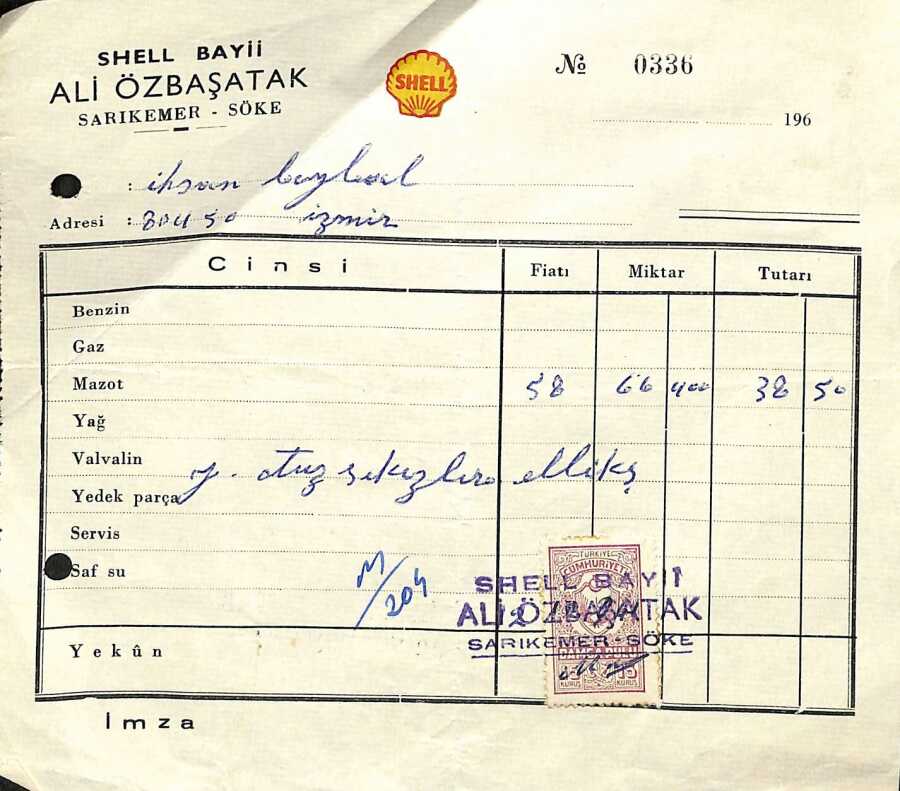 SHELL BAYİİ
ALİ ÖZBAŞATAK
SARIKEMER - SÖKE
SHELL
№ 0336
196
: ihsan
Adresi : izmir
Cinsi Fiatı Miktar Tutarı
Benzin
Gaz
Mazot 58 66 400 38 50
Yağ
Valvalin
y. otuz sekizlira ellikş
Yedek parça
Servis
Saf su
M/204
TÜRKİYE
CUMHURİYETİ
SHELL BAYİİ
ALİ ÖZBAŞATAK
SARIKEMER - SÖKE
DAMGA PULU
15 15
KURUŞ KURUŞ
Yekûn
İmza